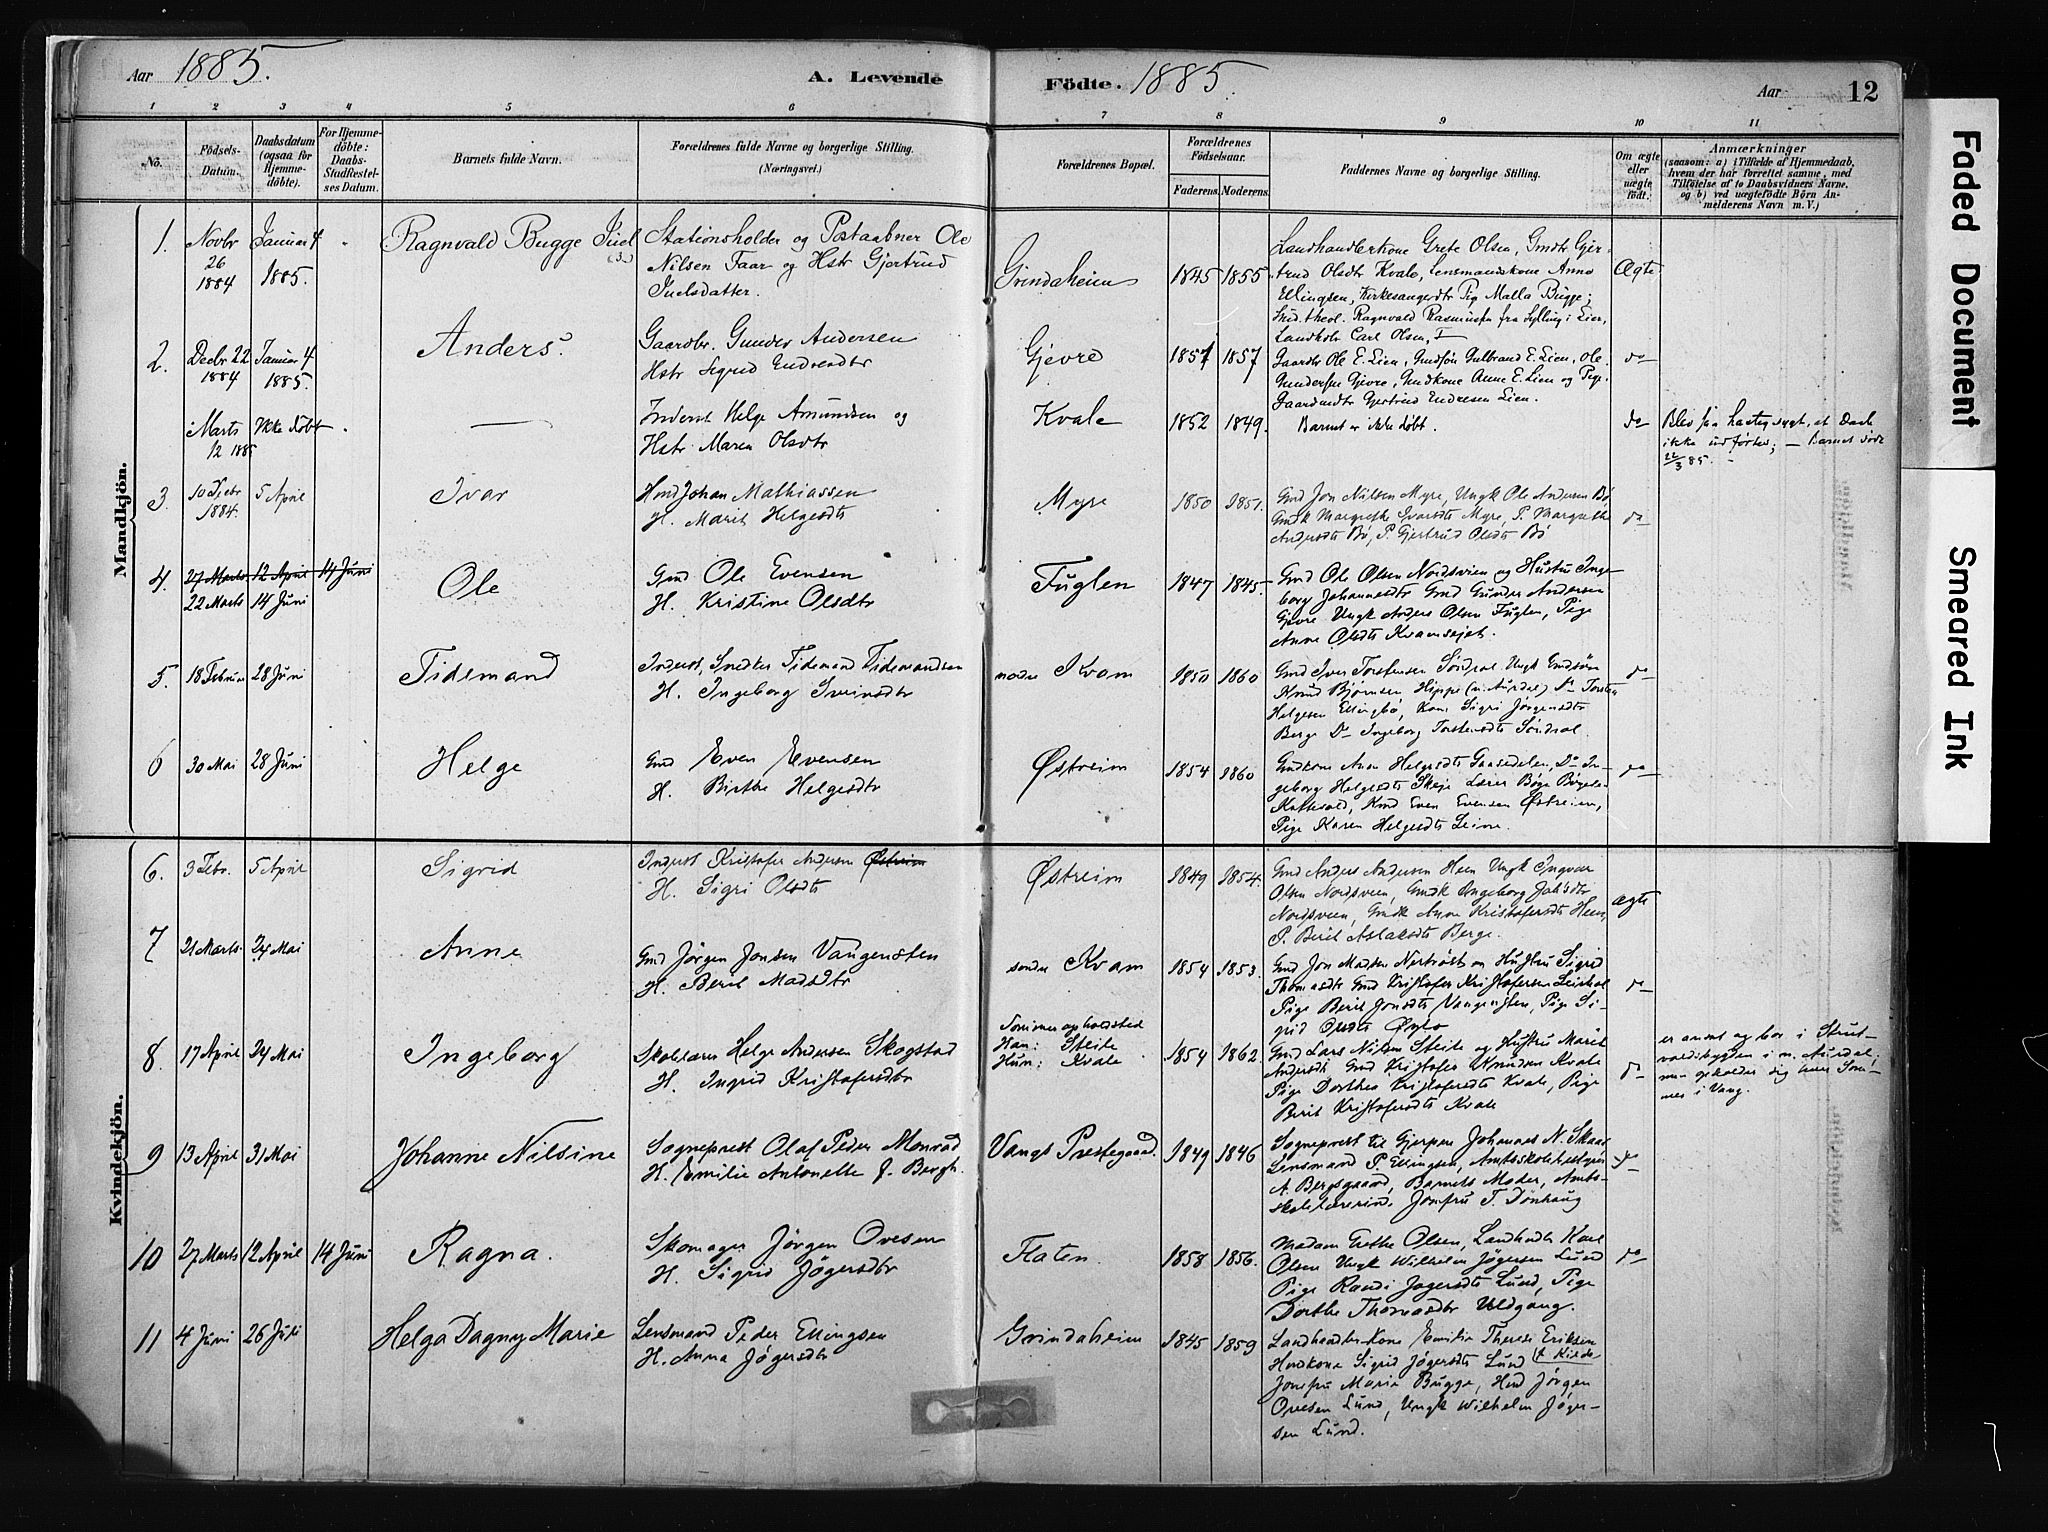 Aar 1885.
A. Levende
Födte. 1885.
Aar
12
1 2 3 4 5 6 7 8 9 10 11
No.
Födsels-
Datum.
Daabsdatum
(ogsaa for
Hjemme-
döbte).
For Hjemme-
döbte:
Daabs-
Stadfæstel-
ses Datum.
Barnets fulde Navn.
Forældrenes fulde Navne og borgerlige Stilling.
(Næringsvei.)
Forældrenes Bopæl.
Forældrenes
Födselsaar.
Faderens. Moderens.
Faddernes Navne og borgerlige Stilling.
Om ægte
eller
uægte
födt.
Anmærkninger
(saasom: a) i Tilfælde af Hjemmedaab,
hvem der har forrettet samme, med
Tilföielse af to Daabsvidners Navne.
og b) ved uægtefödte Börn An-
melderens Navn m. V.)
Mandkjön.
1. Novbr 26 1884 Januar 4 1885. Ragnvald Bugge Juel
Stationsholder og Postaabner Ole
Nilsen Faar og Hstr Gjertrud
Juelsdatter.
Grindaheim 1845 1855
Landhandlerkone Grete Olsen, Gmdt Gjer-
trud Olsdtr Kvale, Lensmandskone Anna
Ellingsen, Kirkesangerdtr Pig Malla Bugge;
Stud. theol. Ragnvald Rasmussen fra Sylling i Lier,
Landhdlr Carl Olsen,
Ægte
2. Decbr 22 1884 Januar 4 1885. Anders.
Gaardbr. Gunder Andersen
Hstr Sigrid Endresdtr
Gjevre 1857 1857
Gaardbr Ole E. Lien, Gmdsön Gulbrand E. Lien, Ole
Gundersen Gjevre, Gmdkone Anne E. Lien og Pige
Gaardmdtr Gjertrud Endresen Lien.
do
Marts 12 1885 Ikke döbt. —
Inderst Helge Amundsen og
Hstr Maren Olsdtr
Kvale 1852 1849.
Barnet er ikke döbt.
do
Blev saa hastig sygt, at Daab
ikke udförtes; — Barnet döde
22/3 85. —
3 10 Decbr 1884. 5 April Ivar
Hmd Johan Mathiassen
H. Marit Helgesdtr
Myre 1850 1851.
Gmd Jon Nilsen Myre, Ungk Ole Andersen Bö
Gmdk Margrethe Ivarsdtr Myre, P. Margrethe
Andersdtr Bö, P. Gjertrud Olsdtr Bö
do
4. 27 Marts 12 April 14 Juni
22 Marts 14 Juni Ole
Gmd Ole Evensen
H. Kristine Olsdtr
Fuglen 1847 1845.
Gmd Ole Olsen Nordsvien og Hustru Inge-
borg Johannesdtr Gmd Gunder Andersen
Gjevre Ungk Anders Olsen Fuglen, Pige
Anne Olsdtr Kvamsöjet.
5. 18 Februar 28 Juni Tidemand
Inderst, Snedker Tidemand Tidemandsen
H. Ingeborg Sveinsdtr
nodre Kvam 1850 1860
Gmd Iver Torstensen Söndrol Ungk Gmdsön
Knud Björnsen Hippe (n. Aurdal) Do Torsten
Helgesen Ellingbö, Kone Sigri Jörgensdtr
Berge Do Ingeborg Torstensdtr Söndrol.
do
6 30 Mai 28 Juni Helge
Gmd Even Evensen
H. Birthe Helgesdtr
Østreim 1854 1860
Gmdkone Anne Helgesdtr Gaasedelen, Do In-
geborg Helgesdtr Skeje Lærer Böye Böyesen
Kattevold, Kmd Even Evensen Østreim,
Pige Karen Helgesdtr Leine.
do
Kvindekjön.
6. 3 Febr. 5 April Sigrid
Inderst Kristofer Andersen Østreim
H. Sigri Olsdtr
Østreim 1849 1854.
Gmd Anders Andersen Heen Ungk Ingvar
Olsen Nordsveen, Gmdk Ingeborg Johsdtr
Nordsveen, Gmdk Anne Kristofersdtr Heen,
P. Berit Aslaksdtr Berge.
Ægte
7 21 Marts 24 Mai Anne
Gmd Jörgen Jonsen Vangensten
H. Berit Madsdtr
söndre Kvam 1854 1853.
Gmd Jon Madsen Nertröst og Hustru Sigrid
Thomasdtr Gmd Kristofer Kristofersen Leirhol
Pige Berit Jonsdtr Vangensten, Pige Si-
grid Olsdtr Øylo
do
8. 17 April 24 Mai Ingeborg
Skolelærer Helge Andersen Skogstad
H. Ingrid Kristofersdtr
Sommeropholdsted
Han: Steile
Hun: Kvale 1854 1862
Gmd Lars Nilsen Steile og Hustru Marit
Andersdtr Gmd Kristofer Knudsen Kvale
Pige Dorthea Kristofersdtr Kvale, Pige
Berit Kristofersdtr Kvale
do
er ansat og bor i Strut-
voldsbygden i n. Aurdal;
men opholder sig hver Som-
mer i Vang.
9 13 April 31 Mai Johanne Nilsine
Sogneprest Olaf Peder Monrad
H. Emilie Antonette f. Bergh
Vangs Prestegaard. 1849 1846
Sogneprest til Gjerpen Johannes N. Skaar
Lensmand P. Ellingsen, Amtsskolebestyrer
A. Bergsgaard, Barnets Moder, Amts-
skolelærerinde Jomfru T. Dönhaug
do
10 27 Marts 12 April 14 Juni Ragna.
Skomager Jörgen Ovesen
H. Sigrid Jögersdtr
Flaten. 1858 1856.
Madam Grethe Olsen, Landhdlr Karl
Olsen Ungk Wilhelm Jögersen Lund
Pige Randi Jogersdtr Lund, Pige
Dorthe Thomasdtr Uldgang.
do
11 4 Juni 26 Juli Helga Dagny Marie
Lensmand Peder Ellingsen
H. Anna Jögersdtr
Grindaheim 1845 1859
Landhandlerkone Emilie Therese Eriksen
Hmdkone Sigrid Jögersdtr Lund
Jomfru Marie Bugge, Hmd Jörgen
Ovesen Lund, Ungk Wilhelm Jöger-
sen Lund.
Faded Document
Smeared Ink